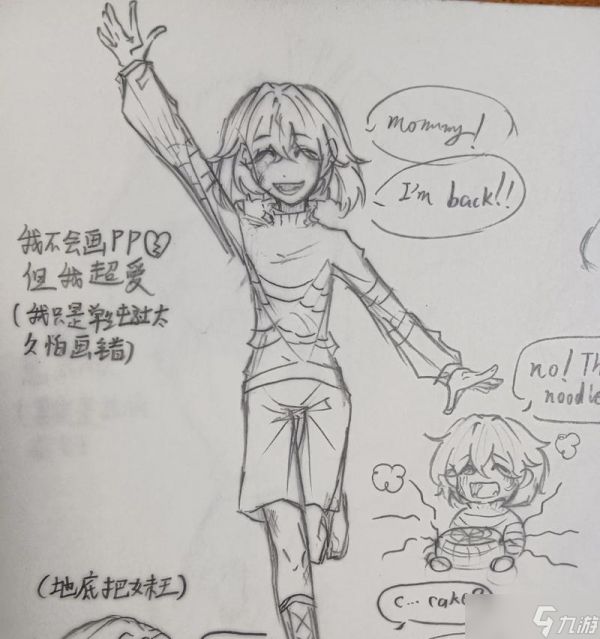 mommy!
I'm back!!
我不会画PP
但我超愛
(我只是 太
久怕画錯)
no! Th
noodle
(地底把妹王)
c... rake?
九游